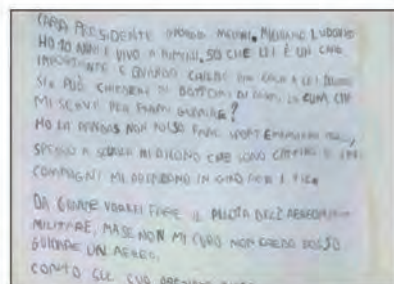 CARA PRESIDENTE GIORGIA MELONI, MI CHIAMO LUDOVICO
HO 10 ANNI E VIVO A RIMINI. SO CHE LEI È UN CAPO
IMPORTANTE E QUANDO CHIEDE UNA COSA A LEI DICONO
SI. PUÒ CHIEDERE AI DOTTORI DI LA CURA CHE
MI SERVE PER FARMI GUARIRE?
HO LA PANDAS NON POSSO FARE SPORT
SPESSO A SCUOLA MI DICONO CHE SONO CATTIVO E I MIEI
COMPAGNI MI PRENDONO IN GIRO PER I TIC.
DA GRANDE VORREI FARE IL PILOTA DELL'AERONAUTICA
MILITARE, MA SE NON MI CURO NON CREDO POSSO
GUIDARE UN AEREO.
CONTO SUL SUO